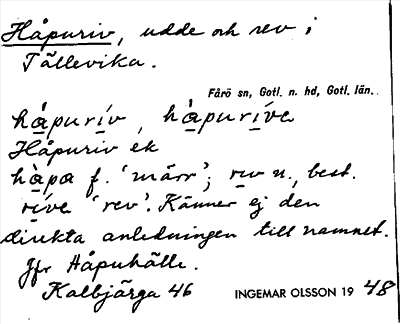 Håpuriv, udde och rev i
Tällevika.
Fårö sn, Gotl. n. hd, Gotl. län.
hå̀purív, hå̀puríve
Håpuriv ek
hå̀pa f. ‘märr’; riv n., best.
ríve ‘rev’. Känner ej den
direkta anledningen till namnet.
Jfr Håpuhälle.
Kalbjärga 46 INGEMAR OLSSON 19 48